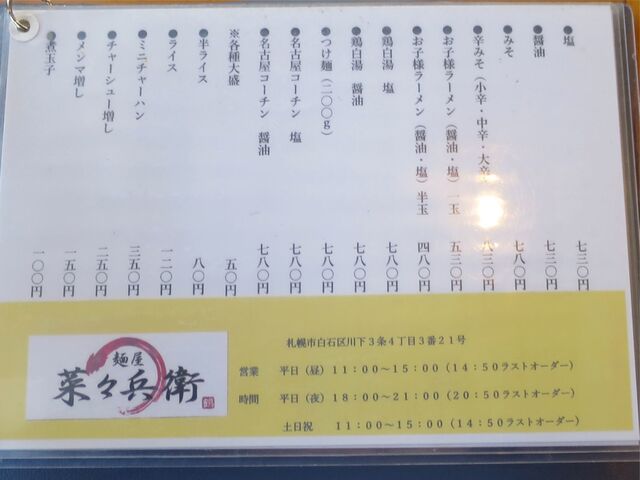 ●塩 七三〇円
●醤油 七三〇円
●みそ 七八〇円
●辛みそ（小辛・中辛・大辛 八三〇円
●お子様ラーメン（醤油・塩）一玉 五三〇円
●お子様ラーメン（醤油・塩）半玉 四八〇円
●鶏白湯 塩 七八〇円
●鶏白湯 醤油 七八〇円
●つけ麺（二〇〇g） 七八〇円
●名古屋コーチン 塩 七八〇円
●名古屋コーチン 醤油 七八〇円
※各種大盛 五〇円
●半ライス 八〇円
●ライス 一二〇円
●ミニチャーハン 三五〇円
●チャーシュー増し 二五〇円
●メンマ増し 一五〇円
●煮玉子 一〇〇円
麺屋
菜々兵衛
札幌市白石区川下3条4丁目3番21号
営業 平日（昼）11:00～15:00（14:50ラストオーダー）
時間 平日（夜）18:00～21:00（20:50ラストオーダー）
土日祝 11:00～15:00（14:50ラストオーダー）